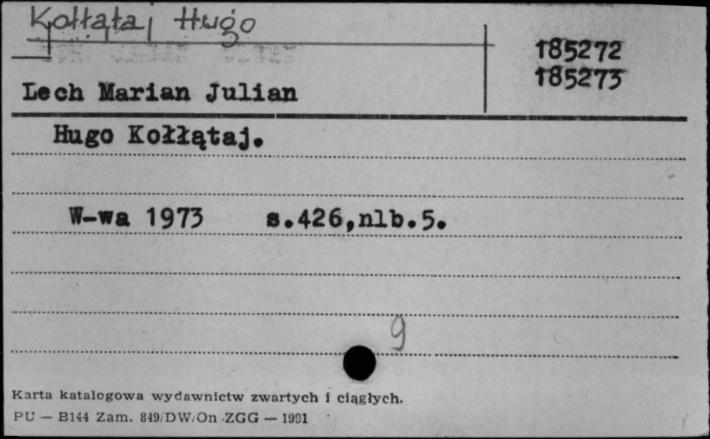 Kołłątaj Hugo
185272
185273
Lech Marian Julian
Hugo Kołłątaj.
W-wa 1973 s.426,nlb.5.
9
Karta katalogowa wydawnictw zwartych i ciągłych.
PU — B144 Zam. 849/DW/On ZGG — 1991